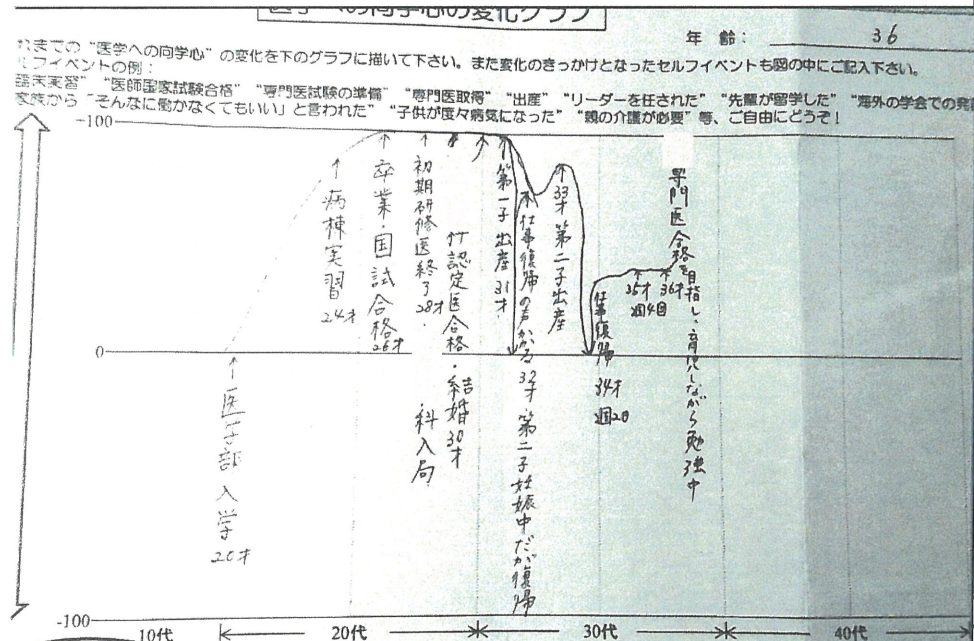 医学への向学心の変化グラフ
年 齢： 36
れまでの “医学への向学心” の変化を下のグラフに描いて下さい。また変化のきっかけとなったセルフイベントも図の中にご記入下さい。
ルフイベントの例：
臨床実習” “医師国家試験合格” “専門医試験の準備” “専門医取得” “出産” “リーダーを任された” “先輩が留学した” “海外の学会での発表
家族から「そんなに働かなくてもいい」と言われた” “子供が度々病気になった” “親の介護が必要” 等、ご自由にどうぞ！
-100
0
-100
医学部入学
20才
病棟実習
24才
卒業・国試合格
26才
初期研修医終了
28才.
科入局
認定医合格・結婚
30才
第一子出産
31才
仕事復帰の声かかる
32才
第二子妊娠中だが復帰
33才 第二子出産
仕事復帰
34才
週2日
35才
週4回
36才
専門医合格を目指し、育児しながら勉強中
10代
20代
30代
40代